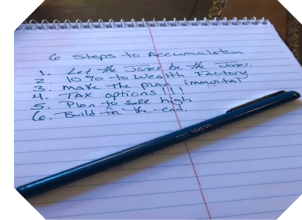 6 Steps to Accumulation
1. Let the Joxes be the Joxes.
2. 10% to Wealth Factory
3. Make the plan immortal
4. TAX options !!!
5. Plan to sell high
6. Build to the end.